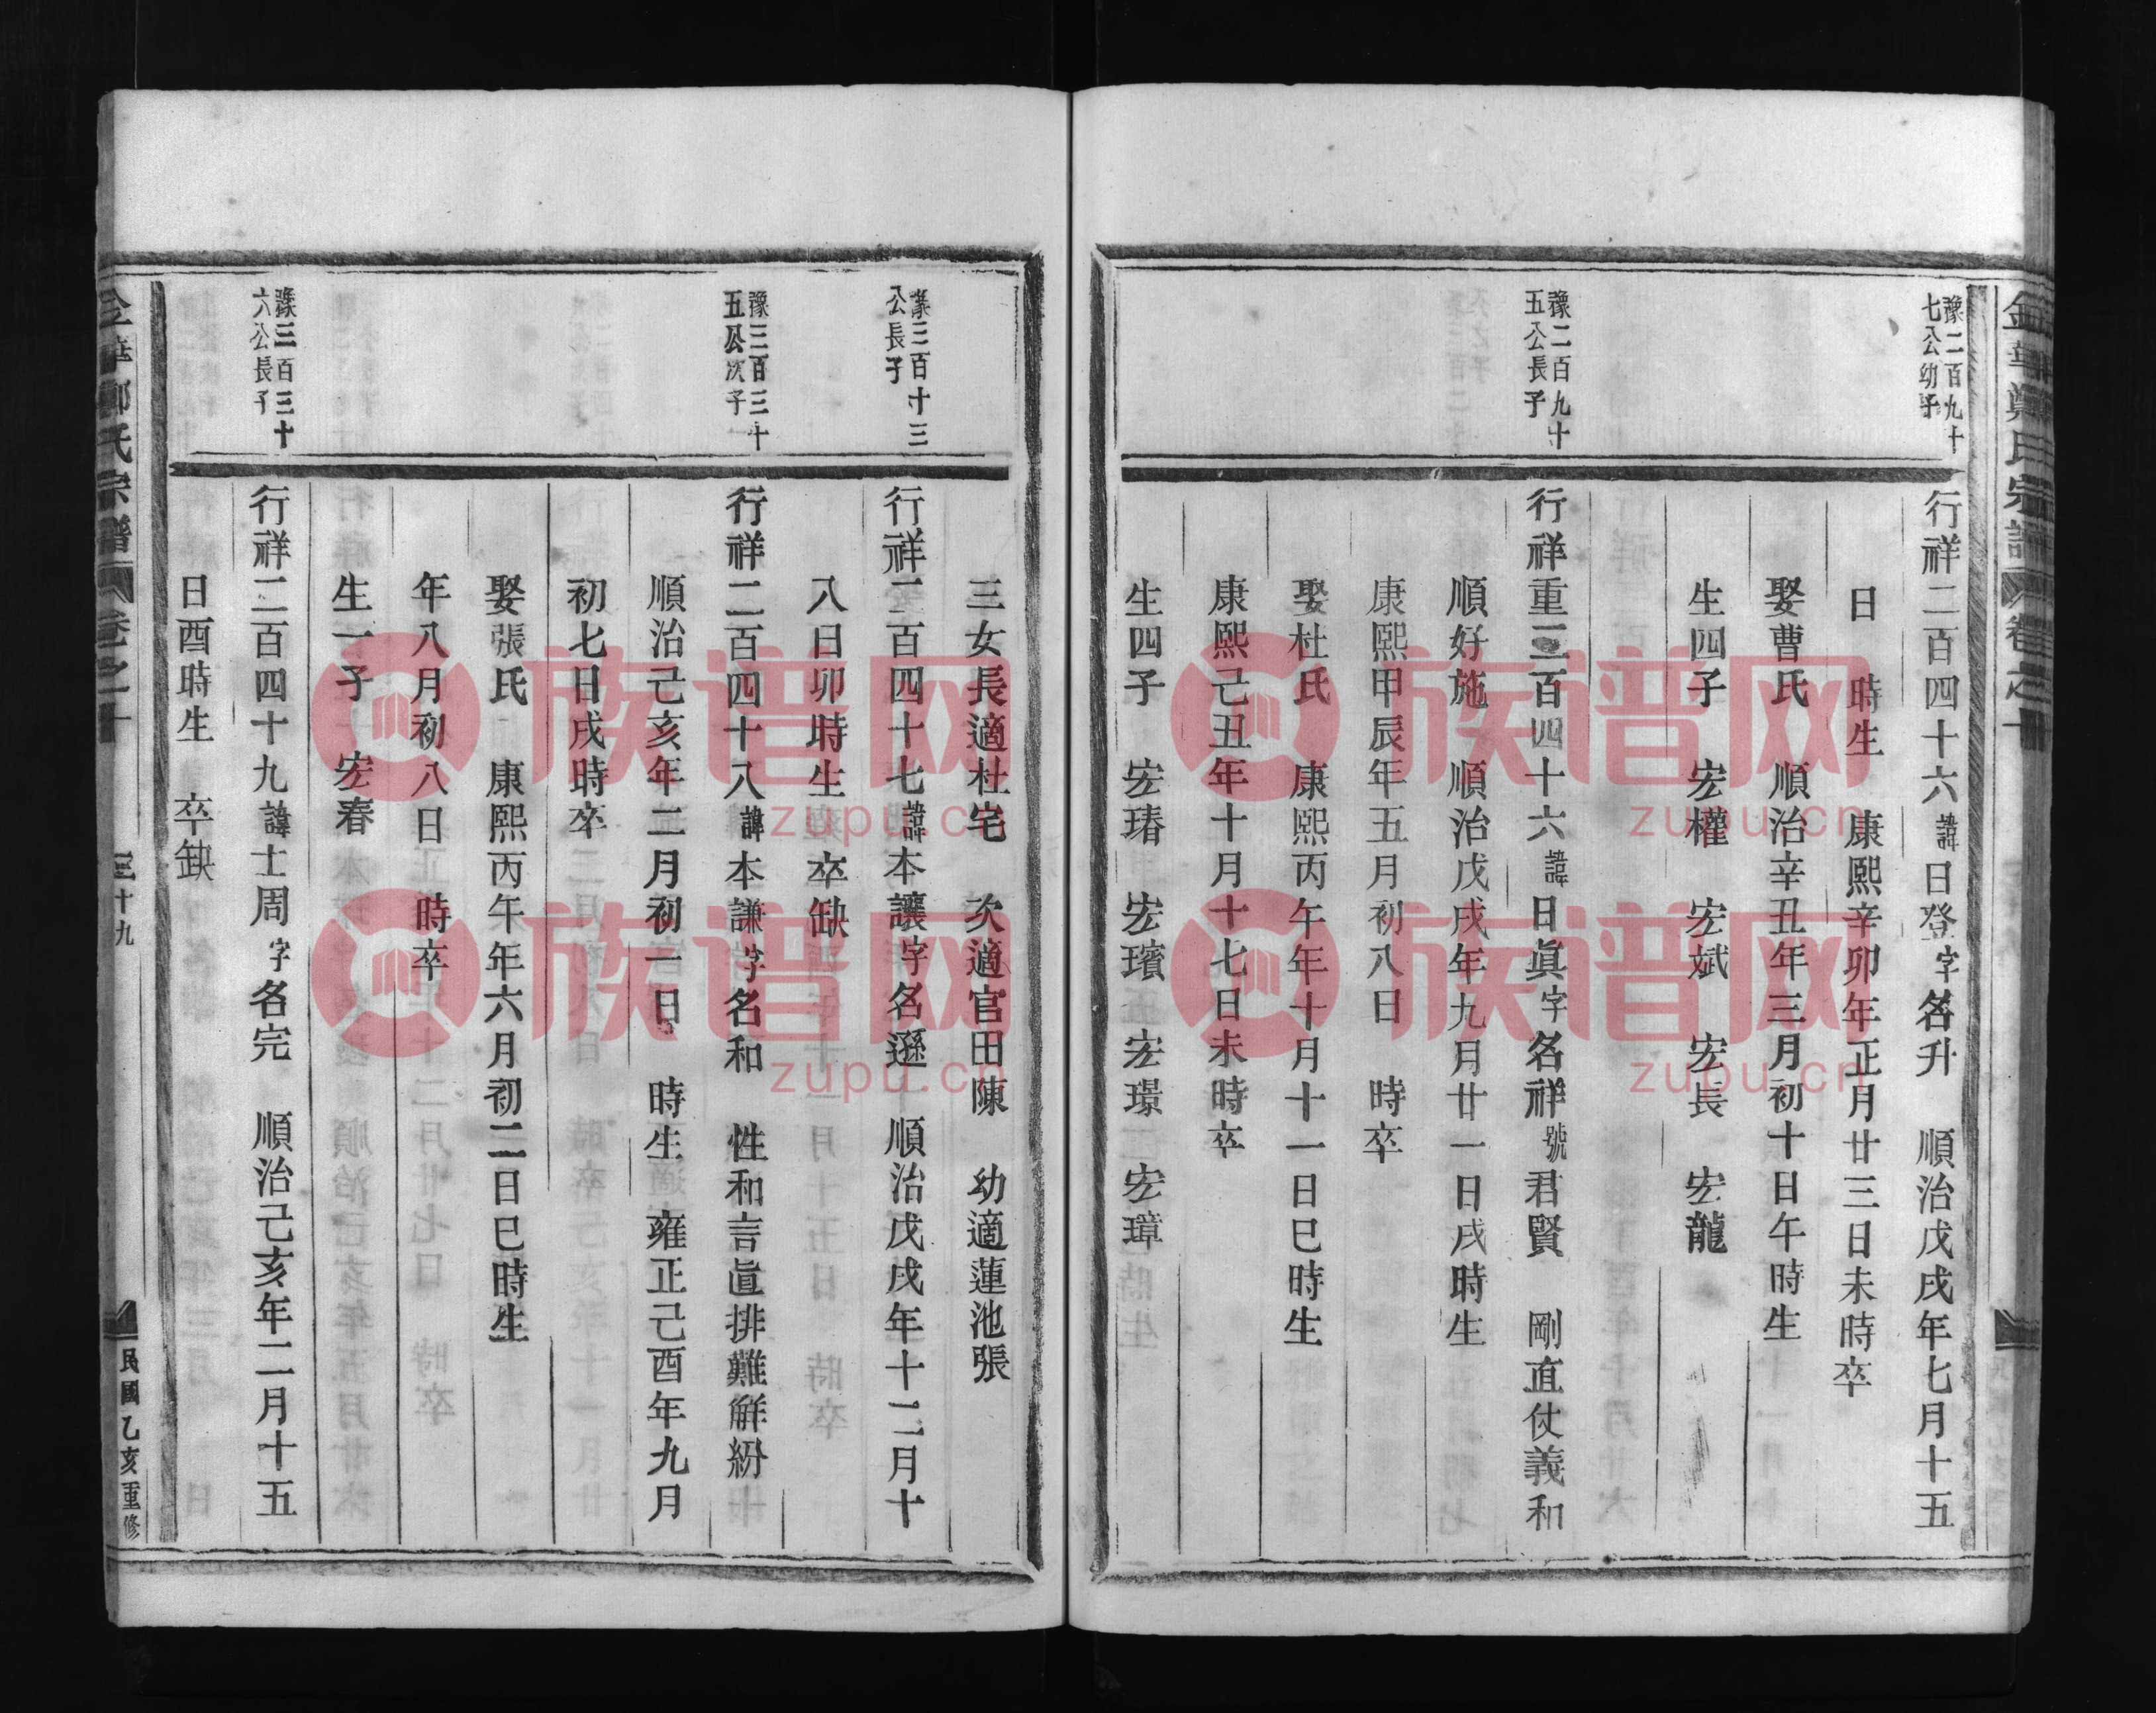 金華鄭氏宗譜 卷之十
豫二百九十
七公幼子
行祥二百四十六諱日登字名升 順治戊戌年七月十五
日 時生 康熙辛卯年正月廿三日未時卒
娶曹氏 順治辛丑年三月初十日午時生
生四子 宏權 宏斌 宏長 宏龍
豫二百九十
五公長子
行祥重二百四十六諱日眞字名祥號君賢 剛直仗義和
順好施 順治戊戌年九月廿一日戌時生
康熙甲辰年五月初八日 時卒
娶杜氏 康熙丙午年十月十一日巳時生
康熙己丑年十月十七日未時卒
生四子 宏瑃 宏璸 宏璟 宏璋
三女長適杜宅 次適官田陳 幼適蓮池張
豫三百十三
公長子
行祥二百四十七諱本讓字名遜 順治戊戌年十二月十
八日卯時生 卒缺
豫三百三十
五公次子
行祥二百四十八諱本謙字名和 性和言直排難解紛
順治己亥年二月初一日 時生 雍正己酉年九月
初七日戌時卒
娶張氏 康熙丙午年六月初二日巳時生
年八月初八日 時卒
生一子 宏春
豫三百三十
六公長子
行祥二百四十九諱士周字名完 順治己亥年二月十五
日酉時生 卒缺
金華鄭氏宗譜 卷之十 三十九 民國乙亥重修
族谱网
zupu.cn
族谱网
zupu.cn
族谱网
zupu.cn
族谱网
zupu.cn